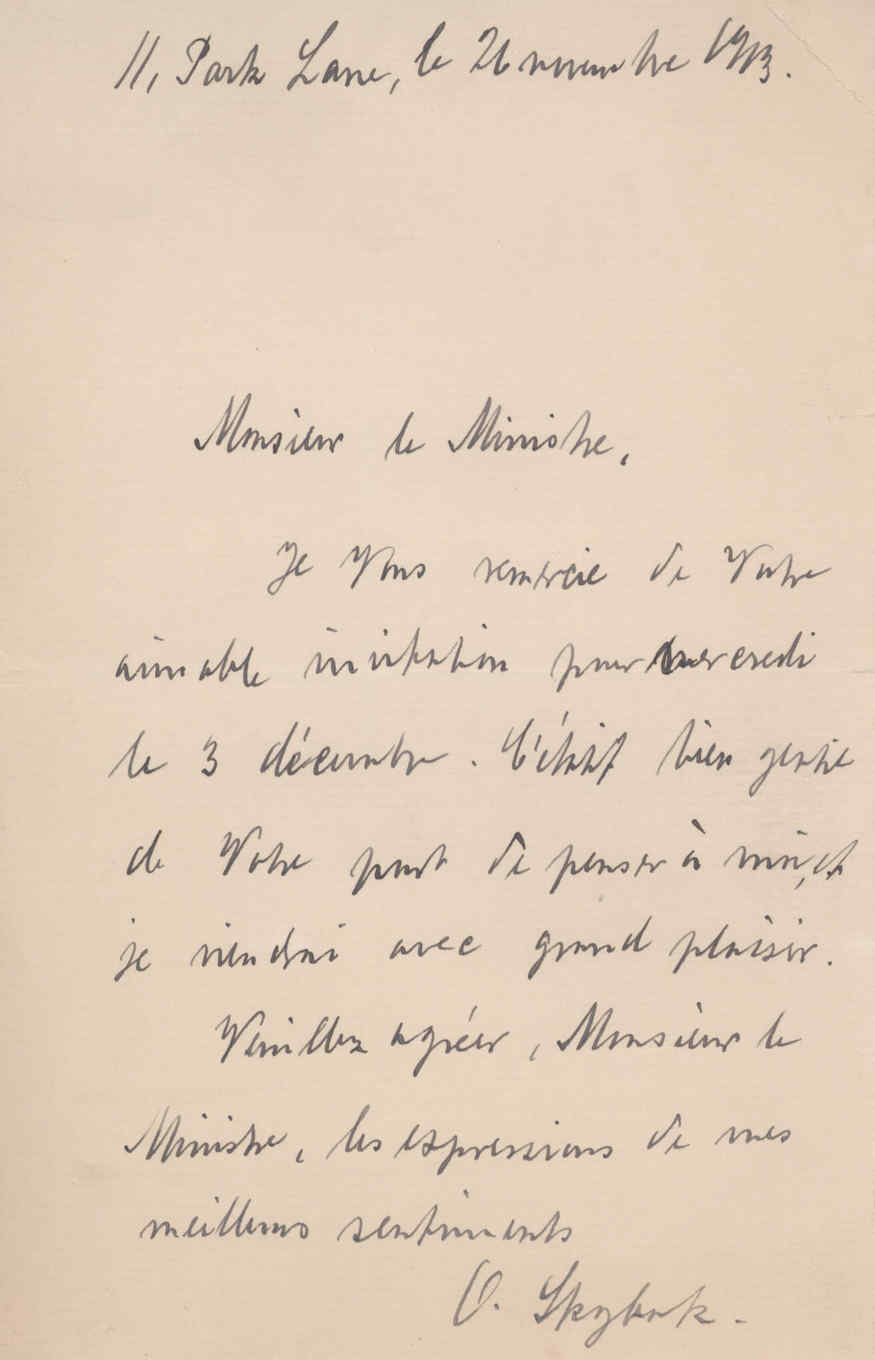 11, Park Lane, le 26 novembre 1913.
Monsieur le Ministre,
Je Vous remercie de Votre
aimable invitation pour mercredi
le 3 décembre. C'était bien gentil
de Votre part de penser à moi, et
je viendrai avec grand plaisir.
Veuillez agréer, Monsieur le
Ministre, les expressions de mes
meilleurs sentiments
O. Skybak.